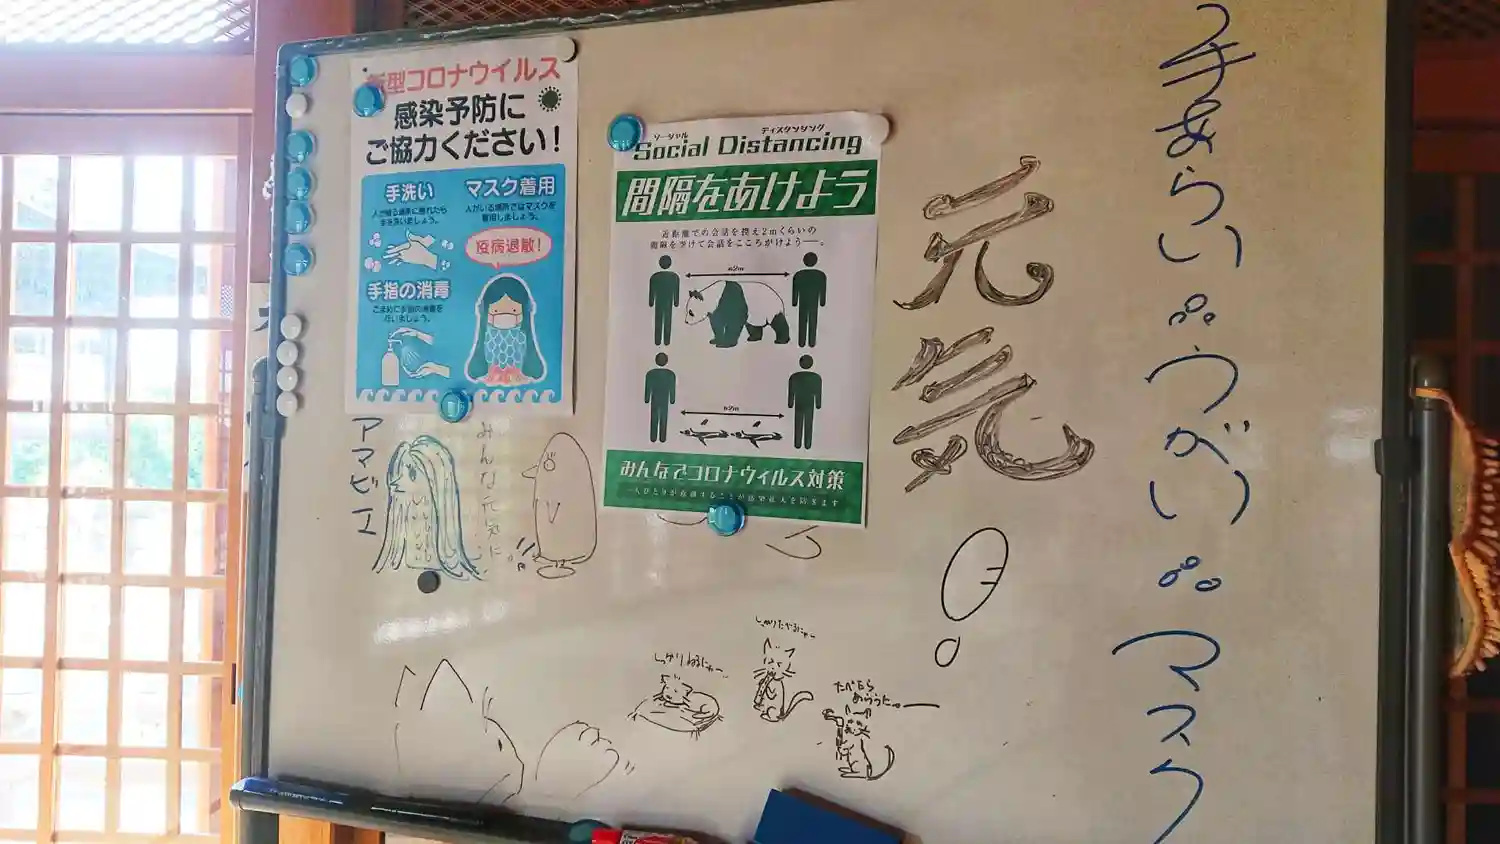 新型コロナウイルス
感染予防に
ご協力ください！
手洗い
人が触る場所に触れたら
手を洗いましょう。
マスク着用
人がいる場所ではマスクを
着用しましょう。
疫病退散！
手指の消毒
こまめに手指の消毒を
行いましょう。
ソーシャル ディスタンシング
Social Distancing
間隔をあけよう
近距離での会話を控え2mくらいの
間隔を空けて会話をこころがけよう―。
約2m
約2m
みんなでコロナウィルス対策
一人ひとりが意識することが感染拡大を防ぎます
手あらい
うがい
マスク
元気
アマビエ
みんな元気に
しっかりねるにゃー
しっかりたべるにゃー
たべたら